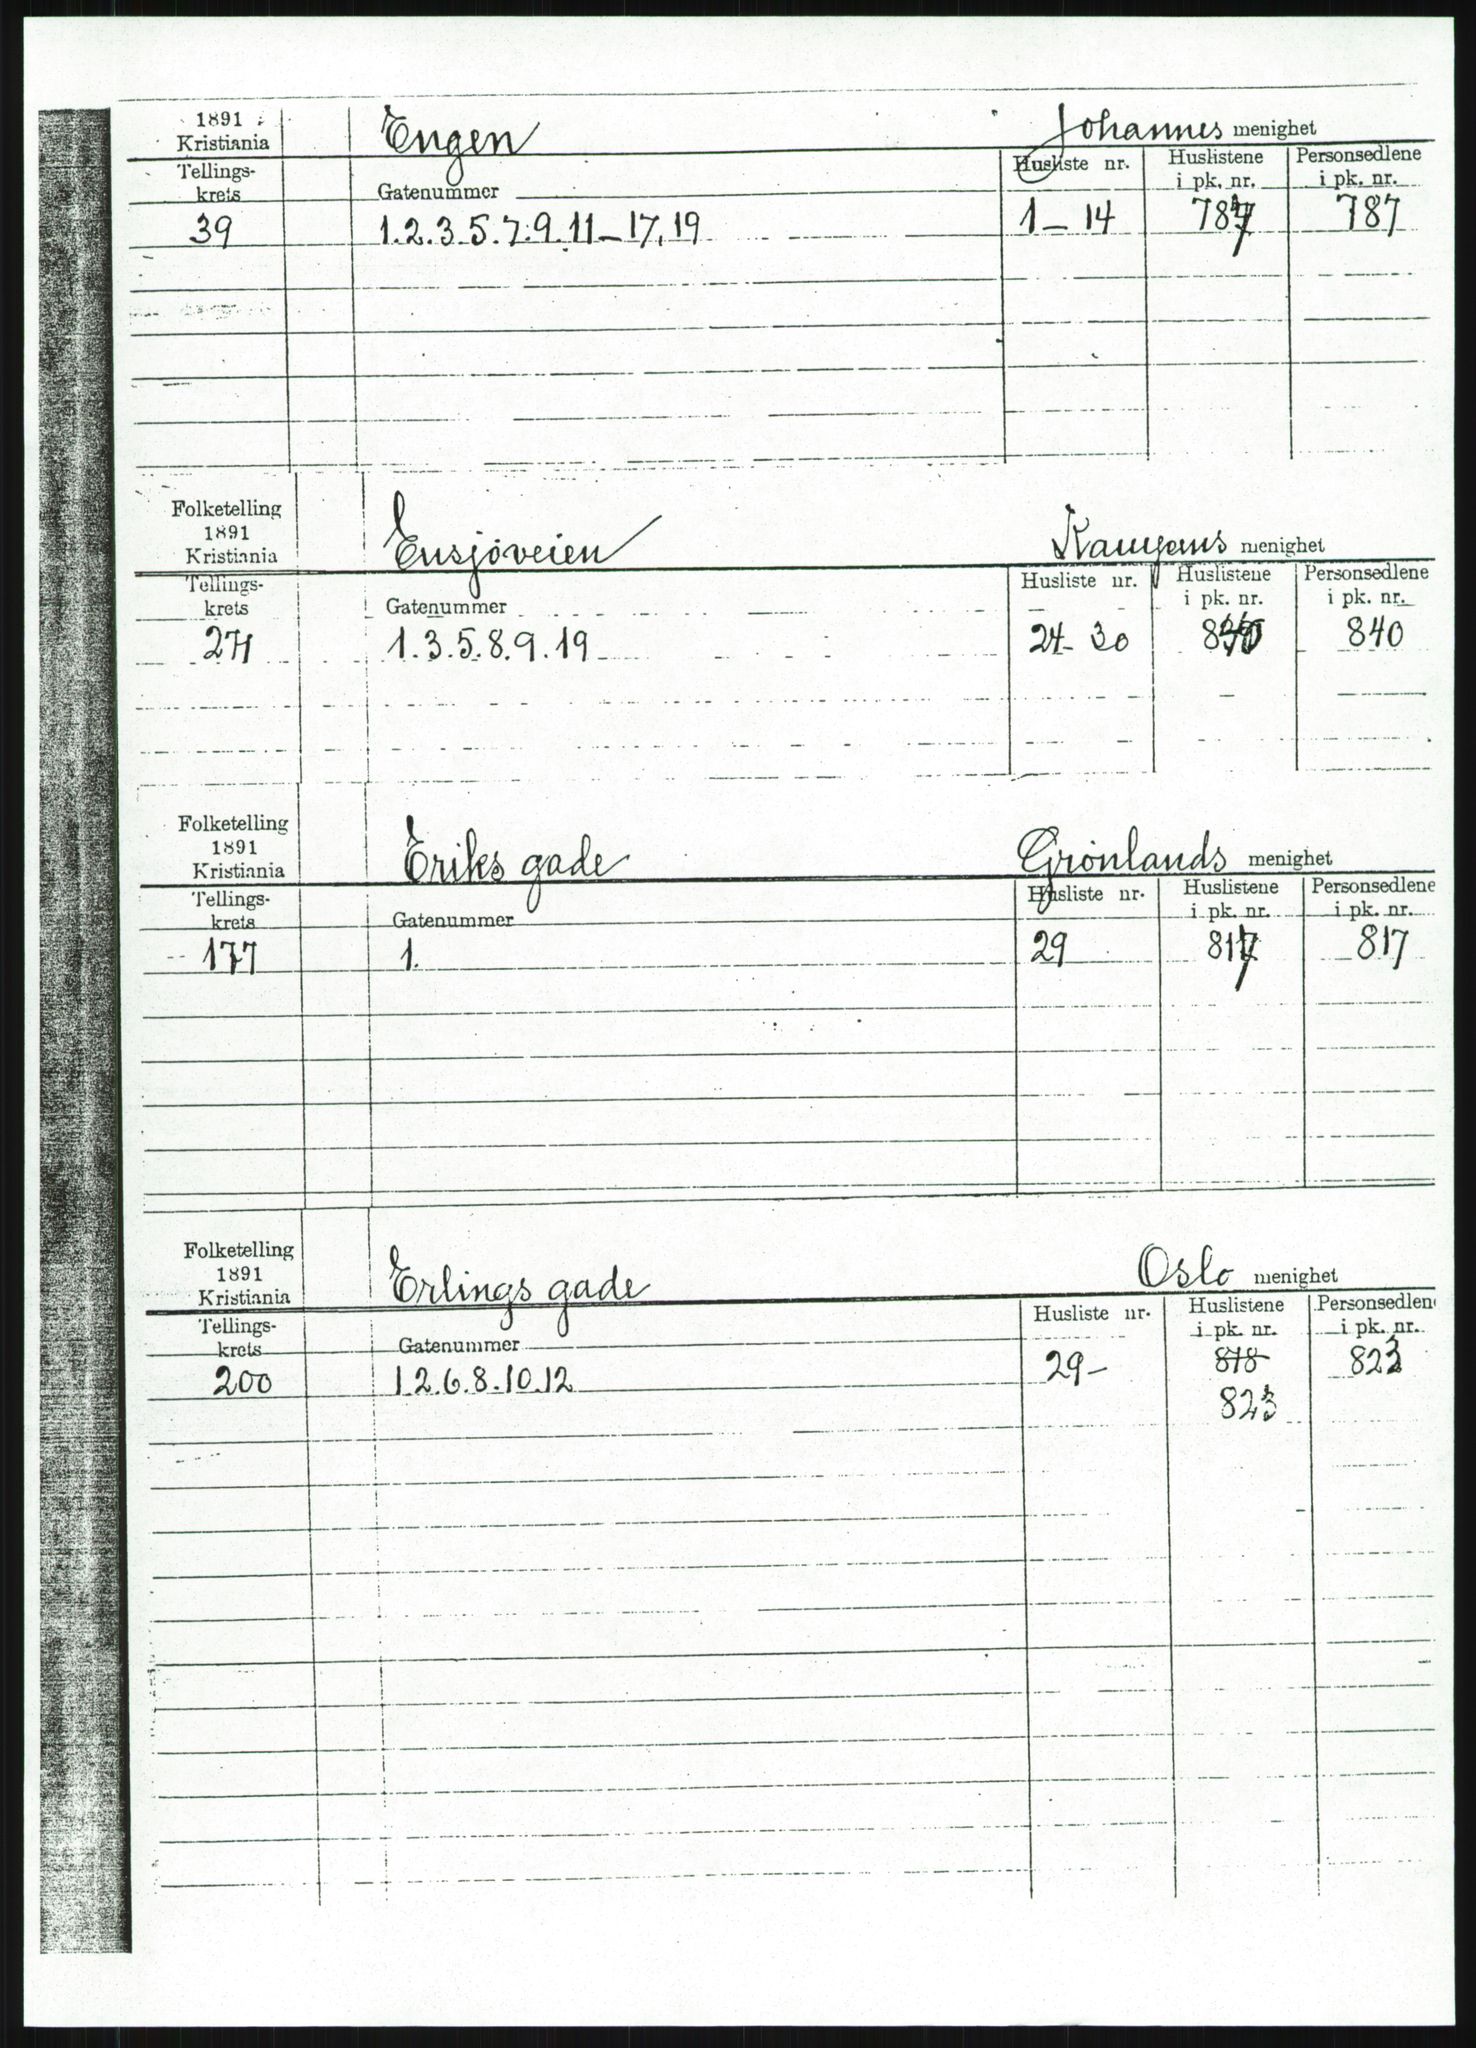 1891
Kristiania
Engen
Johannes menighet
Tellings-
krets
Gatenummer
Husliste nr.
Huslistene
i pk. nr.
Personsedlene
i pk. nr.
39
1.2.3.5.7.9.11-17,19
1-14
787
787
Folketelling
1891
Kristiania
Ensjøveien
Kampens menighet
Tellings-
krets
Gatenummer
Husliste nr.
Huslistene
i pk. nr.
Personsedlene
i pk. nr.
271
1.3.5.8.9.19
24-30
840
840
Folketelling
1891
Kristiania
Eriks gade
Grönlands menighet
Tellings-
krets
Gatenummer
Husliste nr.
Huslistene
i pk. nr.
Personsedlene
i pk. nr.
177
1.
29
817
817
Folketelling
1891
Kristiania
Erlings gade
Oslo menighet
Tellings-
krets
Gatenummer
Husliste nr.
Huslistene
i pk. nr.
Personsedlene
i pk. nr.
200
1.2.6.8.10.12
29-
818
823
823